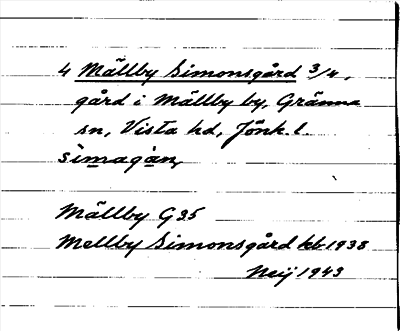 4 Mällby Simonsgård 3/4,
gård i Mällby by, Gränna
sn, Vista hd, Jönk. l.
sìmagàn,
Mällby G35
Mellby Simonsgård kb 1938
Neij 1943